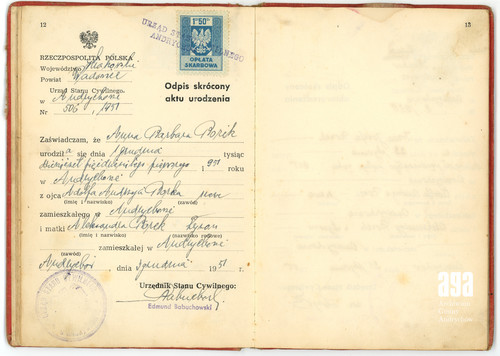 12
URZĄD STANU CYWILNEGO
1 zł 50 gr
OPŁATA
SKARBOWA
RZECZPOSPOLITA POLSKA
Województwo Krakowski
Powiat Wadowice
Urząd Stanu Cywilnego.
w Andrychowie
Nr 505 / 1951
Odpis skrócony
aktu urodzenia
Zaświadczam, że Anna Barbara Borek
urodziła się dnia grudnia tysiąc
dziewięćset pięćdziesiątego pierwszego 1951 roku
w Andrychowie
z ojca Adolfa Andrzeja Borka
(imię i nazwisko) (zawód)
zamieszkałego w Andrychowie
i matki Aleksandra Borek
(imię i nazwisko) (nazwisko rodowe)
zamieszkałej w Andrychowie
(zawód)
Andrychów, dnia grudnia 1951 r.
Urzędnik Stanu Cywilnego:
Babuchowski
Edmund Babuchowski
15
aga